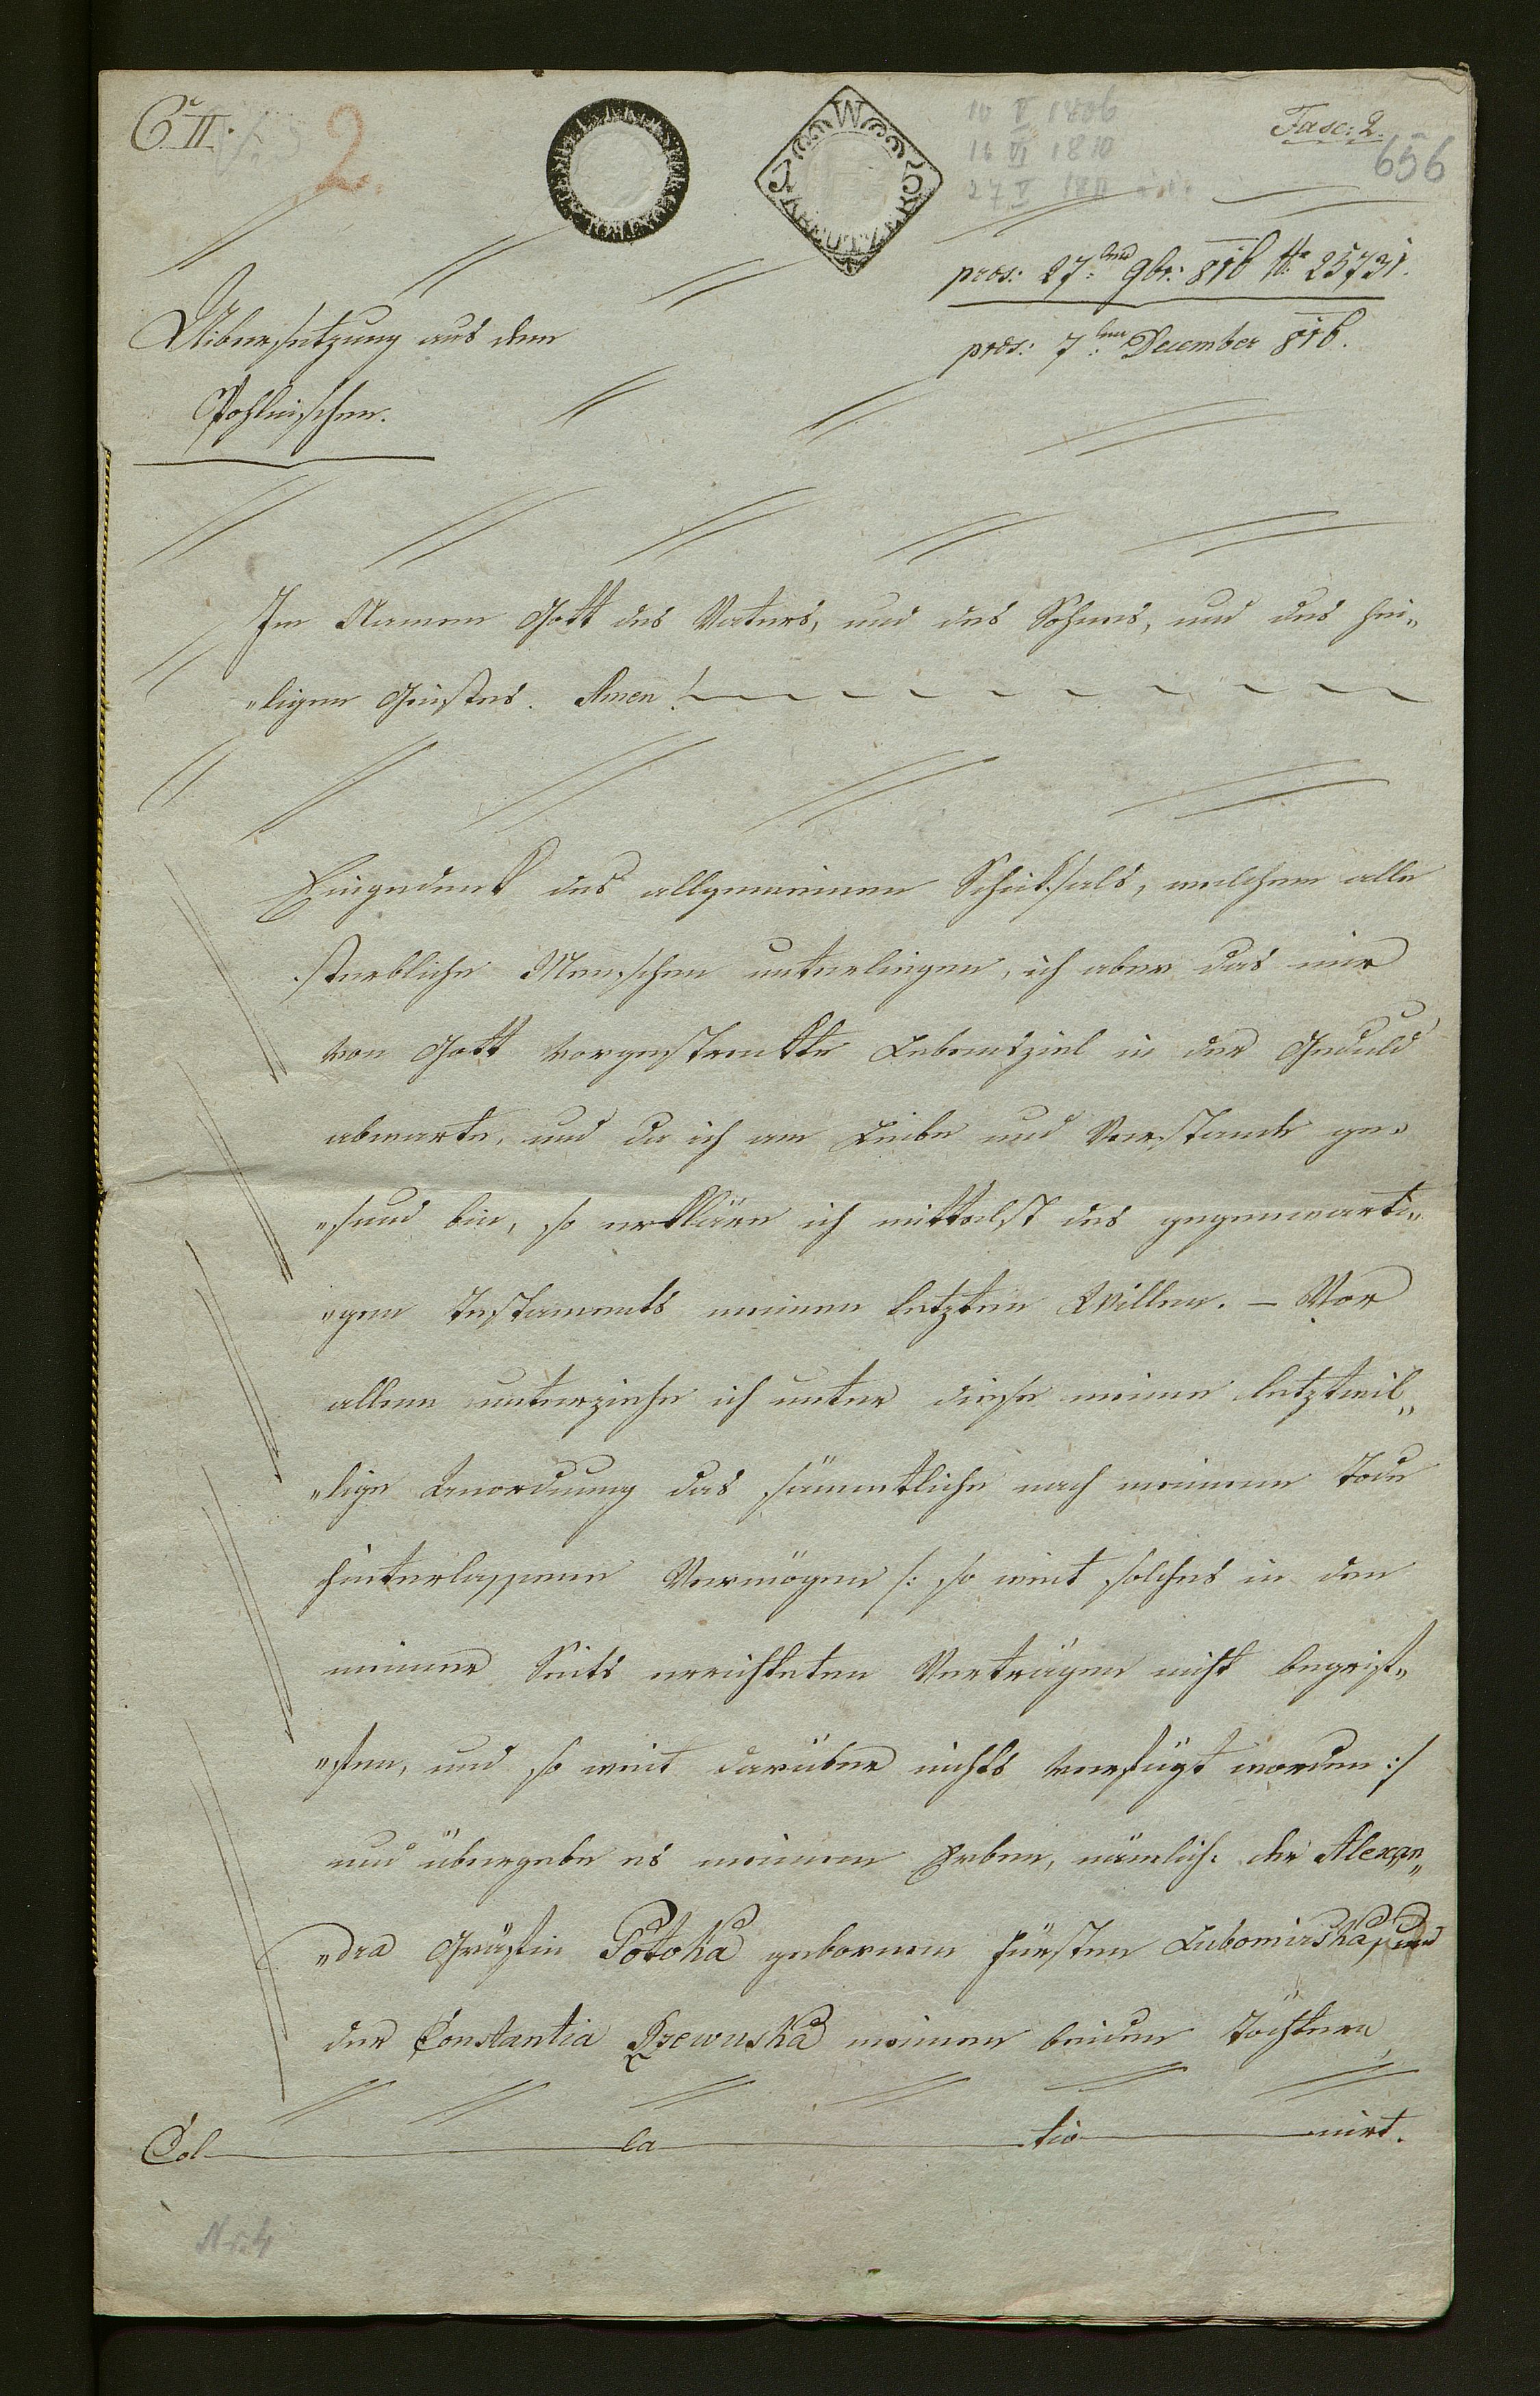 C. II.
2.
10 V 1806
16 VI 1810
27 V 1811
Fasc: 2.
656
W
J
5
KREUTZER
præs: 27ten 9br: 816 No 25731.
præs: 7ten December 816.
Uibersetzung aus dem
Pohlnischen.
Im Namen Gott des Vaters, und des Sohnes, und des hei„
„ligen Geistes. Amen!
Eingedenk des allgemeinen Schiksals, welchem alle
sterbliche Menschen unterliegen, ich aber das mir
von Gott vorgestrekte Lebensziel in der Geduld
abwarte, und da ich am Leibe und Verstande ge„
„sund bin, so erkläre ich mittelst des gegenwärti„
„gen Testaments meinen letzten Willen. – Vor
allem unterziehe ich unter diese meine letztwil„
„lige Anordnung das sämmtliche nach meinem Tode
hinterlassene Vermögen /: so weit solches in den
meiner Seits errichteten Verträgen nicht begrif„
„fen, und so weit darüber nichts verfügt worden :/
und übergebe es meinen Erben, nämlich: der Alexan„
„dra Gräfin Potoka gebornen Fürsten Lubomirska, und
der Constantia Rzewuska meinen beiden Töchtern,
Col la tio nirt.
Nr. 4